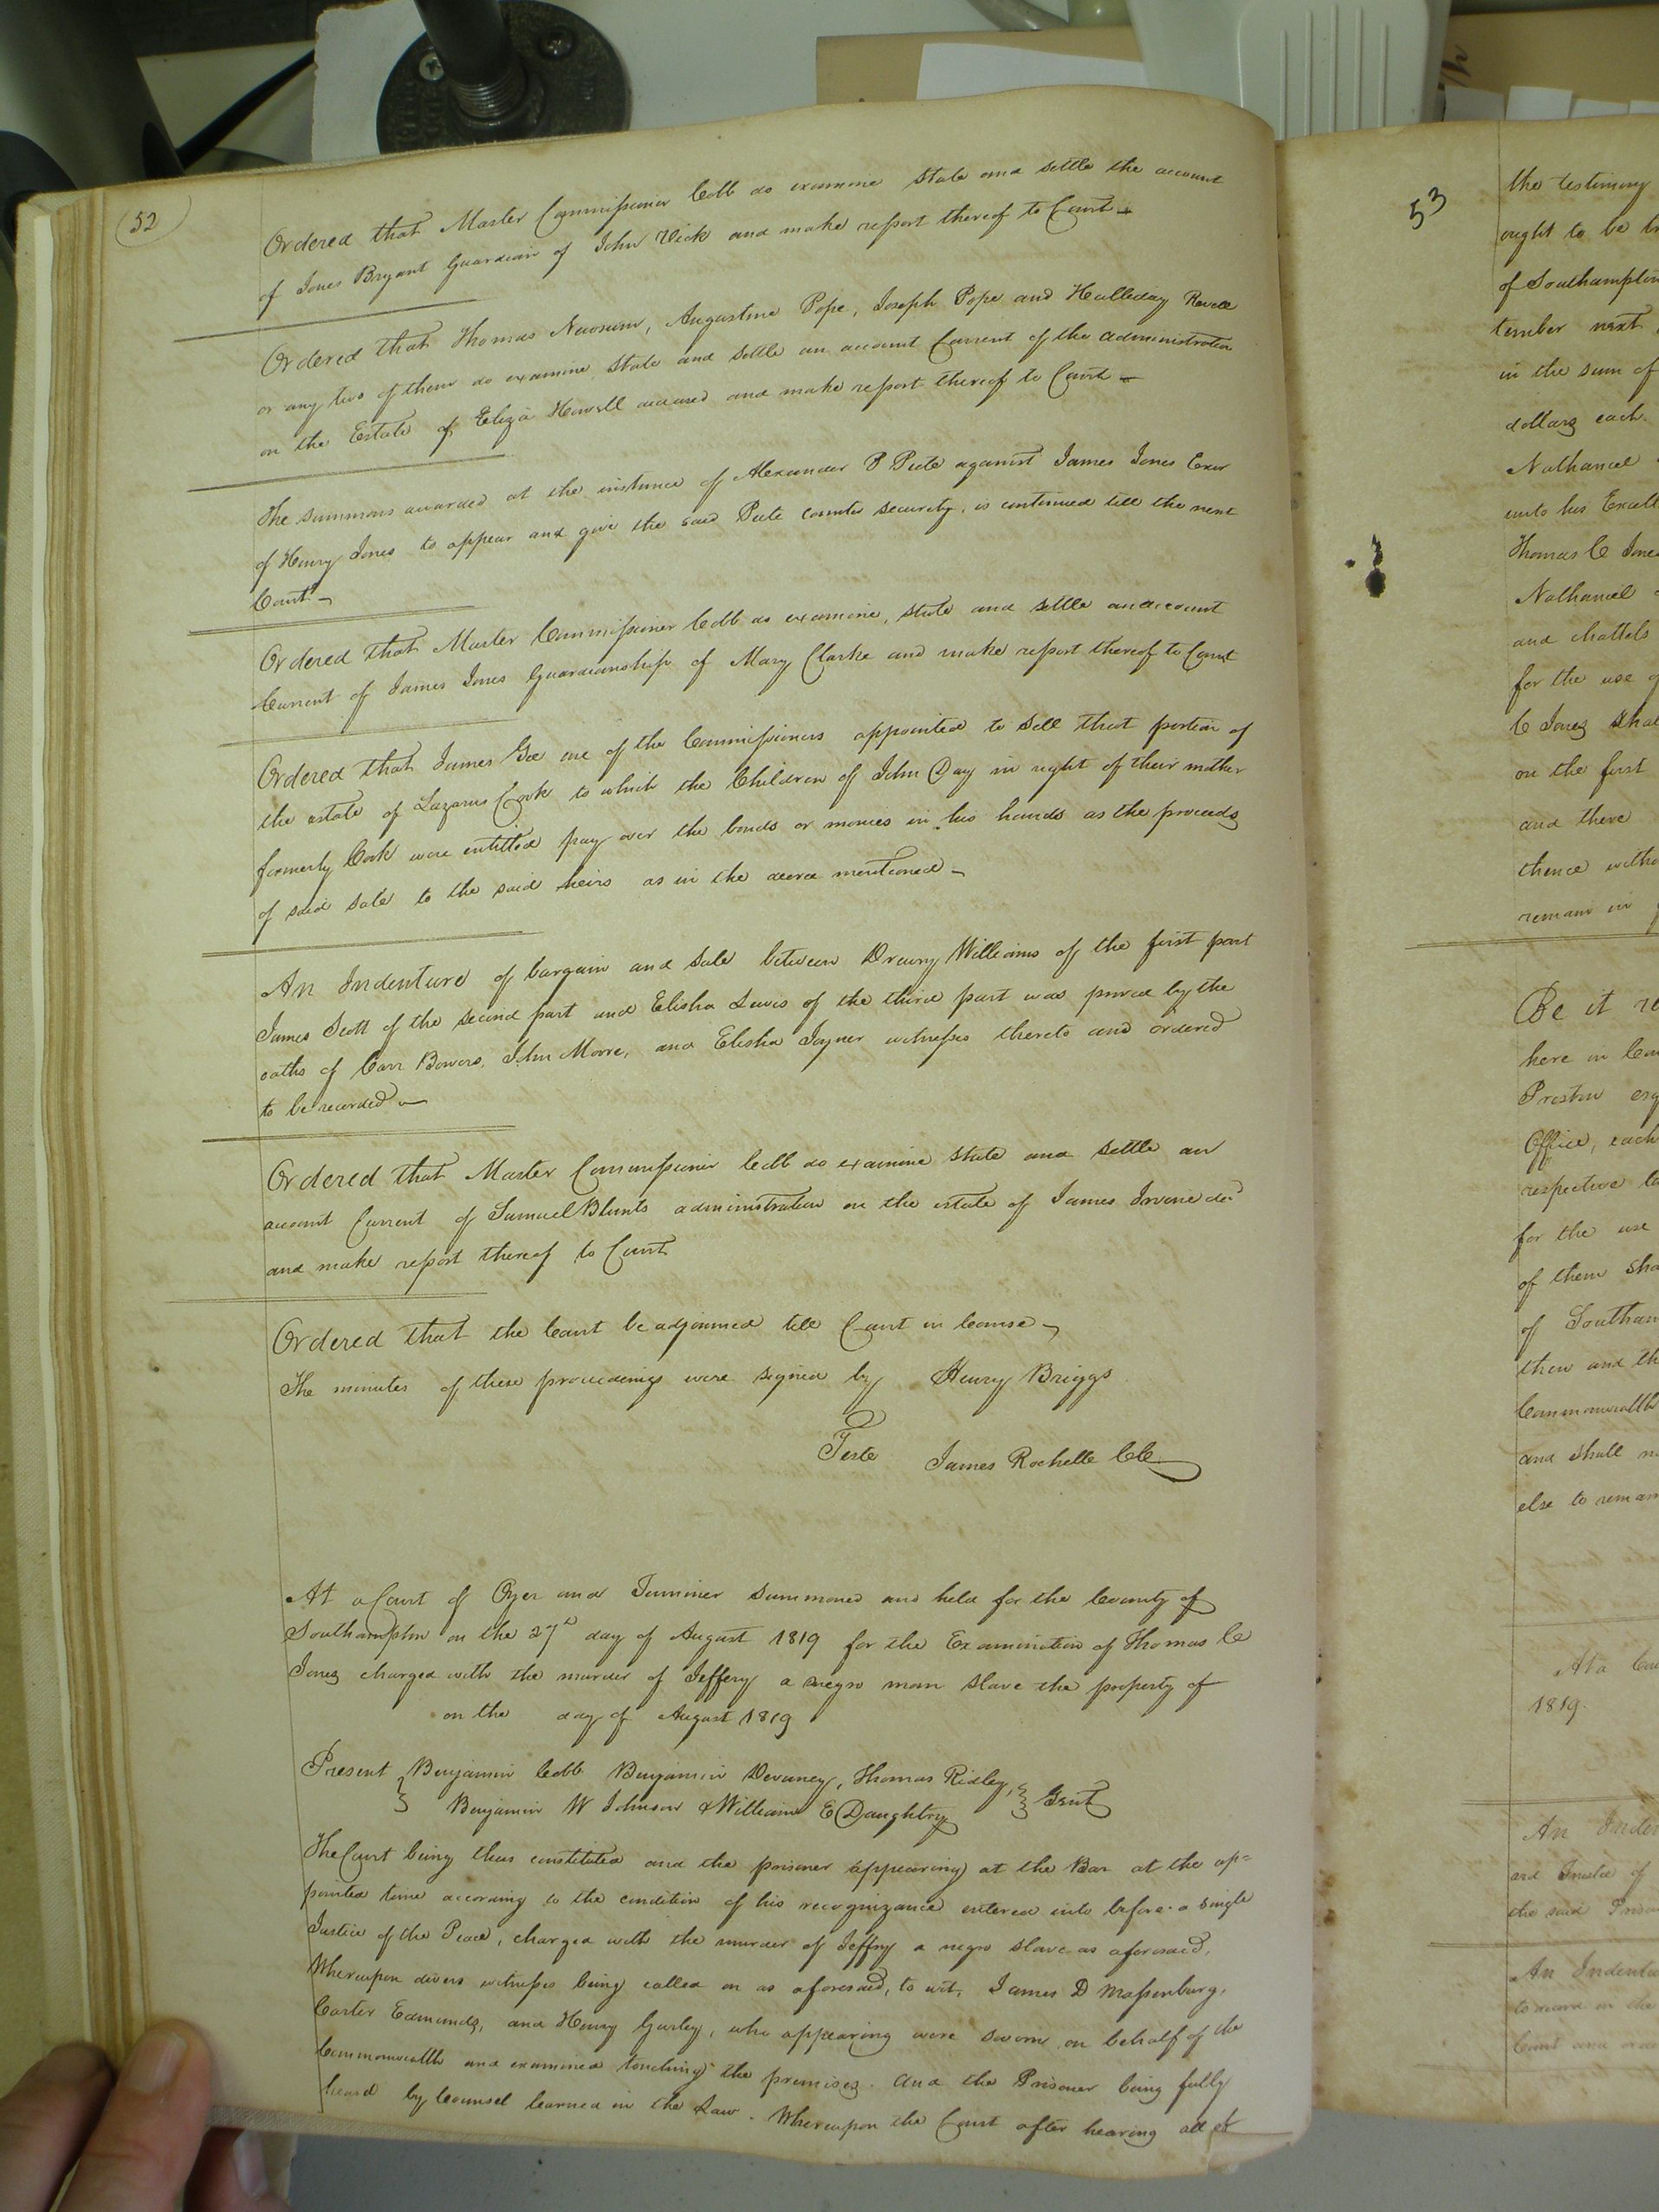 52
Ordered that Master Commissioner Cobb do examine State and settle the account
of Jones Bryant Guardian of John Vick and make report thereof to Court
Ordered that Thomas Newsum, Augustine Pope, Joseph Pope and Halleday Revell
or any two of them do examine, state and settle an account Current of the administration
on the Estate of Eliza Howell deceased and make report thereof to Court
The summons awarded at the instance of Alexander P Peete against James Jones Exor
of Henry Jones to appear and give the said Peete counter security, is continued till the next
Court
Ordered that Master Commissioner Cobb do examine, state and settle an account
Current of James Jones Guardianship of Mary Clarke and make report thereof to Court
Ordered that James Gee one of the Commissioners appointed to Sell that portion of
the estate of Lazarus Cook to which the Children of John Day in right of their mother
formerly Cook were entitled pay over the bonds or monies in his hands as the proceeds
of said sale to the said heirs as in the decree mentioned
An Indenture of bargain and sale between Drewry Williams of the first part
James Scott of the second part and Elisha Lewis of the third part was proved by the
oaths of Carr Bowers, John Moore, and Elisha Joyner witnesses thereto and ordered
to be recorded
Ordered that Master Commissioner Cobb do examine state and settle an
account Current of Samuel Blunts administration on the estate of James Irvine decd
and make report thereof to Court
Ordered that the Court be adjourned till Court in Course
The minutes of these proceedings were signed by Henry Briggs
Teste James Rochelle CC
At a Court of Oyer and Terminer Summoned and held for the County of
Southampton on the 27th day of August 1819 for the Examination of Thomas C
Jones charged with the murder of Jeffery a negro man Slave the property of
on the day of August 1819
Present Benjamin Cobb Benjamin Devaney, Thomas Ridley,
Benjamin W Johnson & William E Daughtry Gent
The Court being thus constituted and the prisoner appearing at the Bar at the ap=
pointed time according to the condition of his recognizance entered into before a single
Justice of the Peace, charged with the murder of Jeffry a negro slave as aforesaid,
Whereupon divers witnesses being called on as aforesaid, to wit, James D Massenburg,
Carter Edmunds, and Henry Gurley, who appearing were sworn on behalf of the
Commonwealth and examined touching the premises. And the Prisoner being fully
heard by Counsel learned in the Law. Whereupon the Court after hearing all of
53
the testimony
ought to be
of Southampton
tember next
in the sum of
dollars each.
Nathaniel
unto his Excell
Thomas C Jone
Nathaniel
and chattels
for the use
C Jones shal
on the first
and there
thence witho
remain in
Be it re
here in Cou
Preston esq
Office, each
respective
for the use
of them sha
of Southam
then and th
Commonwealth
and shall n
else to remain
At a Cou
1819.
An Inden
and Trustee of
the said
An Indentu
to
Court and orde